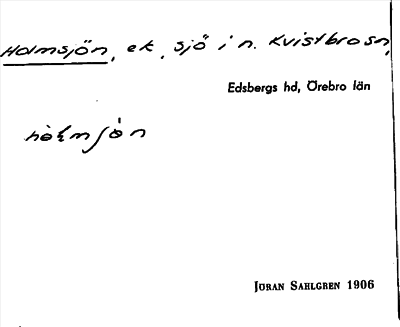 Holmsjön, ek, sjö i n. Kvistbro sn,
Edsbergs hd, Örebro län
hòlmʃö̀n
JÖRAN SAHLGREN 1906